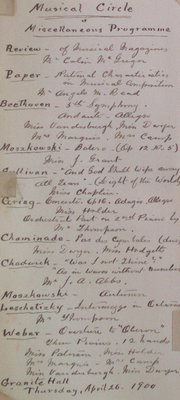 Musical Circle
Miscellaneous Programme
Review - of Musical Magazines
Mr Colin McGregor
Paper - National Characteristics
in Musical Composition
Mr Angelo M. Read
Beethoven - 5th Symphony.
Andante - Allegro
Miss Vandenburgh Miss Dwyer
Mrs Marquis. Mrs Camp
Moszkowski - Bolero (Op 12 No 5)
Miss J. Grant
Sullivan - "And God Shall Wipe away
All Tears" (Light of the World)
Miss Chaplin.
Grieg - Concerto. Op 16. Adagio Allegro
Miss Holden
Orchestral Part on 2nd Piano by
Mr Thompson.
Chaminade - Pas des Cymbales (duo)
Miss Dwyer. Miss Hodgetts
Chadwick - "Thou
"As in waves without number"
Mr J. A. Abbs.
Moszkowski - Autumn
Leschetizky - Intermezzo in Octaves
Mr Thompson
Weber - Overture to "Oberon"
Three Pianos, 12 hands
Miss Palmer. Miss Holden
Mrs Marquis - Mrs Camp
Miss Vandenburgh. Miss Dwyer
Granite Hall
Thursday, April 26. 1900